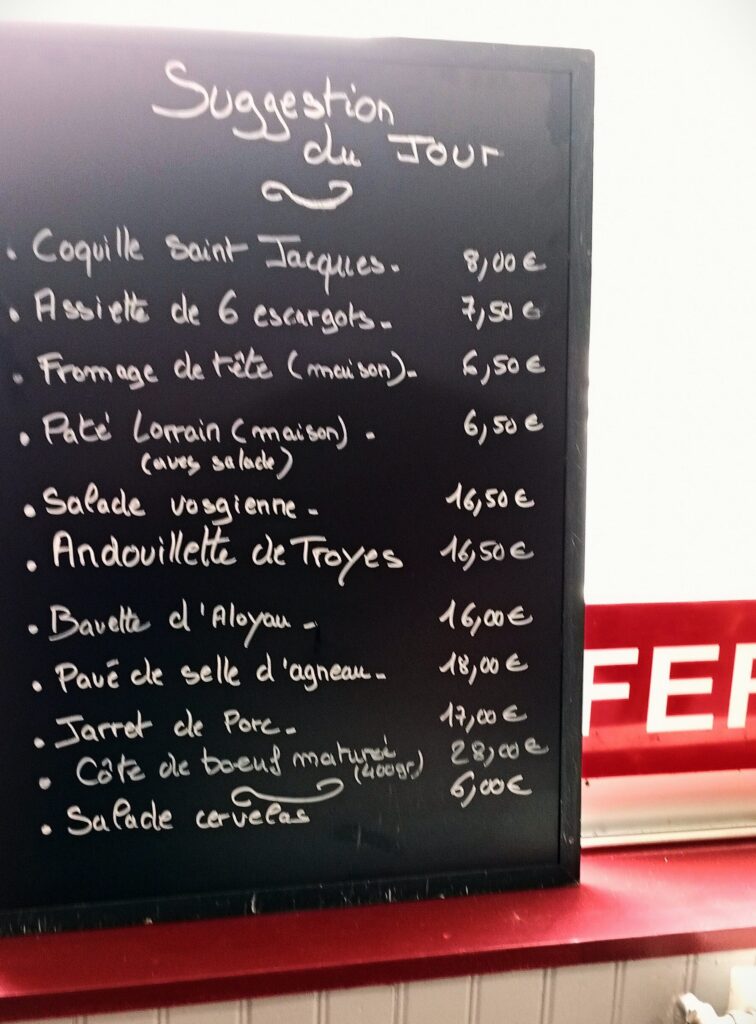 Suggestion
du Jour
• Coquille Saint Jacques - 8,00 €
• Assiette de 6 escargots - 7,50 €
• Fromage de tête (maison) - 6,50 €
• Paté Lorrain (maison) - 6,50 €
(avec salade)
• Salade vosgienne - 16,50 €
• Andouillette de Troyes 16,50 €
• Bavette d'Aloyau - 16,00 €
• Pavé de selle d'agneau - 18,00 €
• Jarret de Porc - 17,00 €
• Côte de boeuf maturée 28,00 €
(400gr)
• Salade cervelas 6,00 €
FER